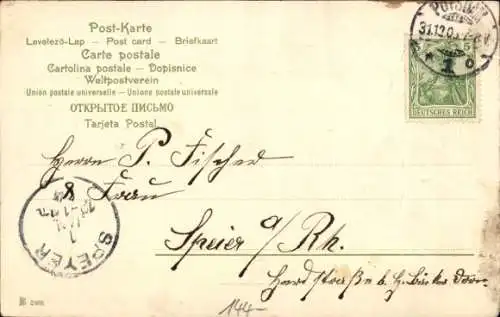 Post-Karte
Levelező-Lap – Post card – Briefkaart
Carte postale
Cartolina postale – Dopisnice
Weltpostverein
Union postale universelle – Unione postale universale
ОТКРЫТОЕ ПИСЬМО
Tarjeta Postal
31.12.0
1
5
DEUTSCHES REICH
Herrn P. Fischer
& Frau
SPEYER
Speier a/Rh.
Hardstraße b. H. Bäcker
144-